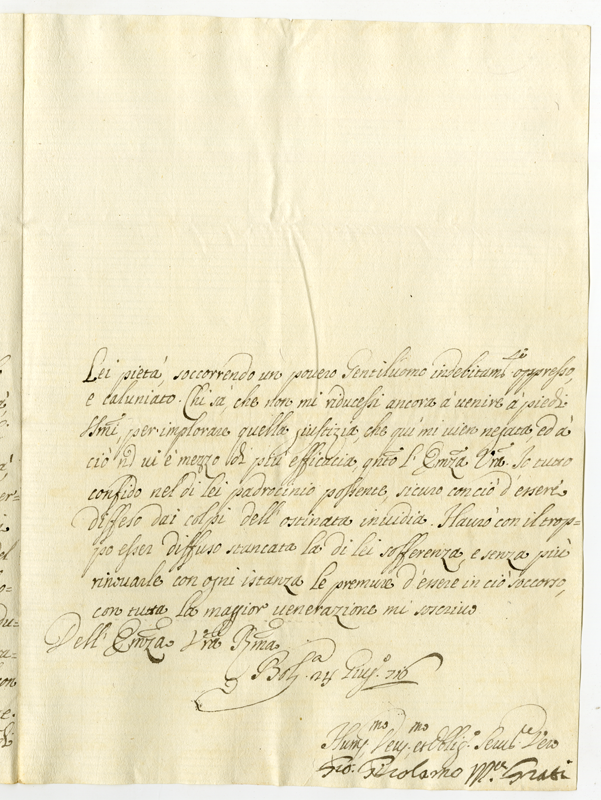 Lei pietà, soccorrendo un povero Gentiluomo indebitam.te oppresso
e caluniato. Chi sà, che non mi riducessi ancora à venire à piedi
SSmi, per implorare quella giustizia, che qui mi vien negata, ed à
ciò nò vi è mezzo di più efficacia, qnto l'Emza Vra. Io tutto
confido nel di lei padrocinio possente, sicuro con ciò d'essere
diffeso dai colpi dell'ostinata invidia. Haurò con il trop=
po esser diffuso stancata la di lei sofferenza, e senza più
rinovarle con ogni istanza le premure d'essere in ciò soccorso,
con tutta la maggior venerazione mi soscrivo
Dell' Emza Vra Rma
Bol.a 24 Giug.o 716
Hum.mo Dev.mo et Obblig.o Serv.re Vero
Gio. Girolamo Grati